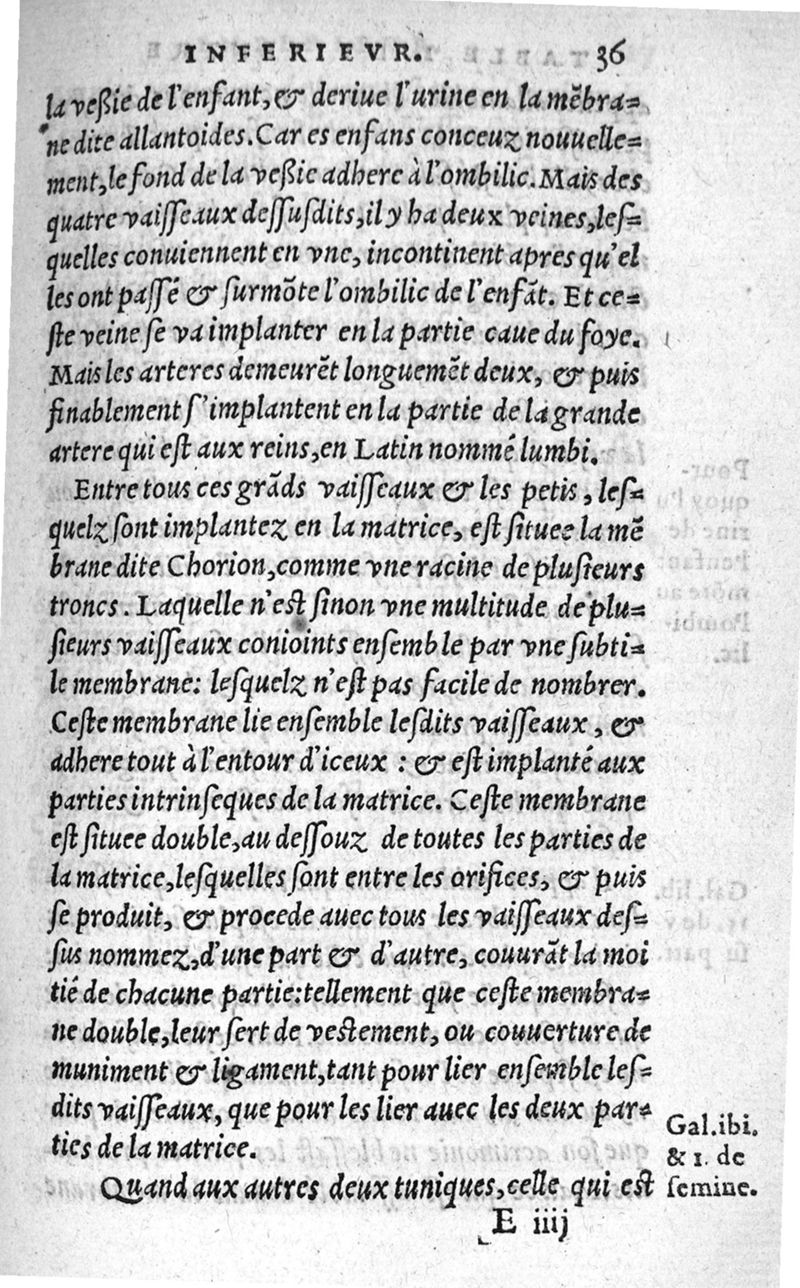 INFERIEVR. 36
la veßie de l'enfant, & deriue l'urine en la mēbra=
ne dite allantoides. Car es enfans conceuz nouuelle=
ment, le fond de la veßie adhere à l'ombilic. Mais des
quatre vaiſſeaux deſſuſdits, il y ha deux veines, leſ=
quelles conuiennent en vne, incontinent apres qu'el
les ont paſſé & ſurmōte l'ombilic de l'enfāt. Et ce=
ſte veine ſe va implanter en la partie caue du foye.
Mais les arteres demeurēt longuemēt deux, & puis
finablement ſ'implantent en la partie de la grande
artere qui eſt aux reins, en Latin nommé lumbi.
Entre tous ces grāds vaiſſeaux & les petis, leſ=
quelz ſont implantez en la matrice, eſt ſituee la mē
brane dite Chorion, comme vne racine de pluſieurs
troncs. Laquelle n'est ſinon vne multitude de plu=
ſieurs vaiſſeaux conioints enſemble par vne ſubti=
le membrane: leſquelz n'eſt pas facile de nombrer.
Ceſte membrane lie enſemble leſdits vaiſſeaux, &
adhere tout à l'entour d'iceux : & eſt implanté aux
parties intrinſeques de la matrice. Ceſte membrane
eſt ſituee double, au deſſouz de toutes les parties de
la matrice, leſquelles ſont entre les orifices, & puis
ſe produit, & procede auec tous les vaiſſeaux deſ=
ſus nommez, d'une part & d'autre, couurāt la moi
tié de chacune partie: tellement que ceſte membra=
ne double, leur ſert de veſtement, ou couuerture de
muniment & ligament, tant pour lier enſemble leſ=
dits vaiſſeaux, que pour les lier auec les deux par=
ties de la matrice.
Quand aux autres deux tuniques, celle qui est
Gal. ibi.
& 1. de
ſemine.
E iiij